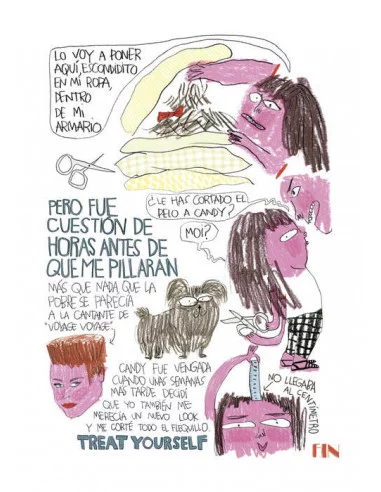 LO VOY A PONER
AQUÍ, ESCONDIDITO
EN MI ROPA,
DENTRO
DE MI
ARMARIO.
¿LE HAS CORTADO EL
PELO A CANDY?
MOI?
PERO FUE
CUESTIÓN DE
HORAS ANTES DE
QUE ME PILLARAN
MÁS QUE NADA QUE LA
POBRE SE PARECÍA
A LA CANTANTE DE
"VOYAGE VOYAGE".
CANDY FUE VENGADA
CUANDO UNAS SEMANAS
MÁS TARDE DECIDÍ
QUE YO TAMBIÉN ME
MERECÍA UN NUEVO LOOK
Y ME CORTÉ TODO EL FLEQUILLO.
TREAT YOURSELF
NO LLEGABA
AL CENTÍMETRO
FIN